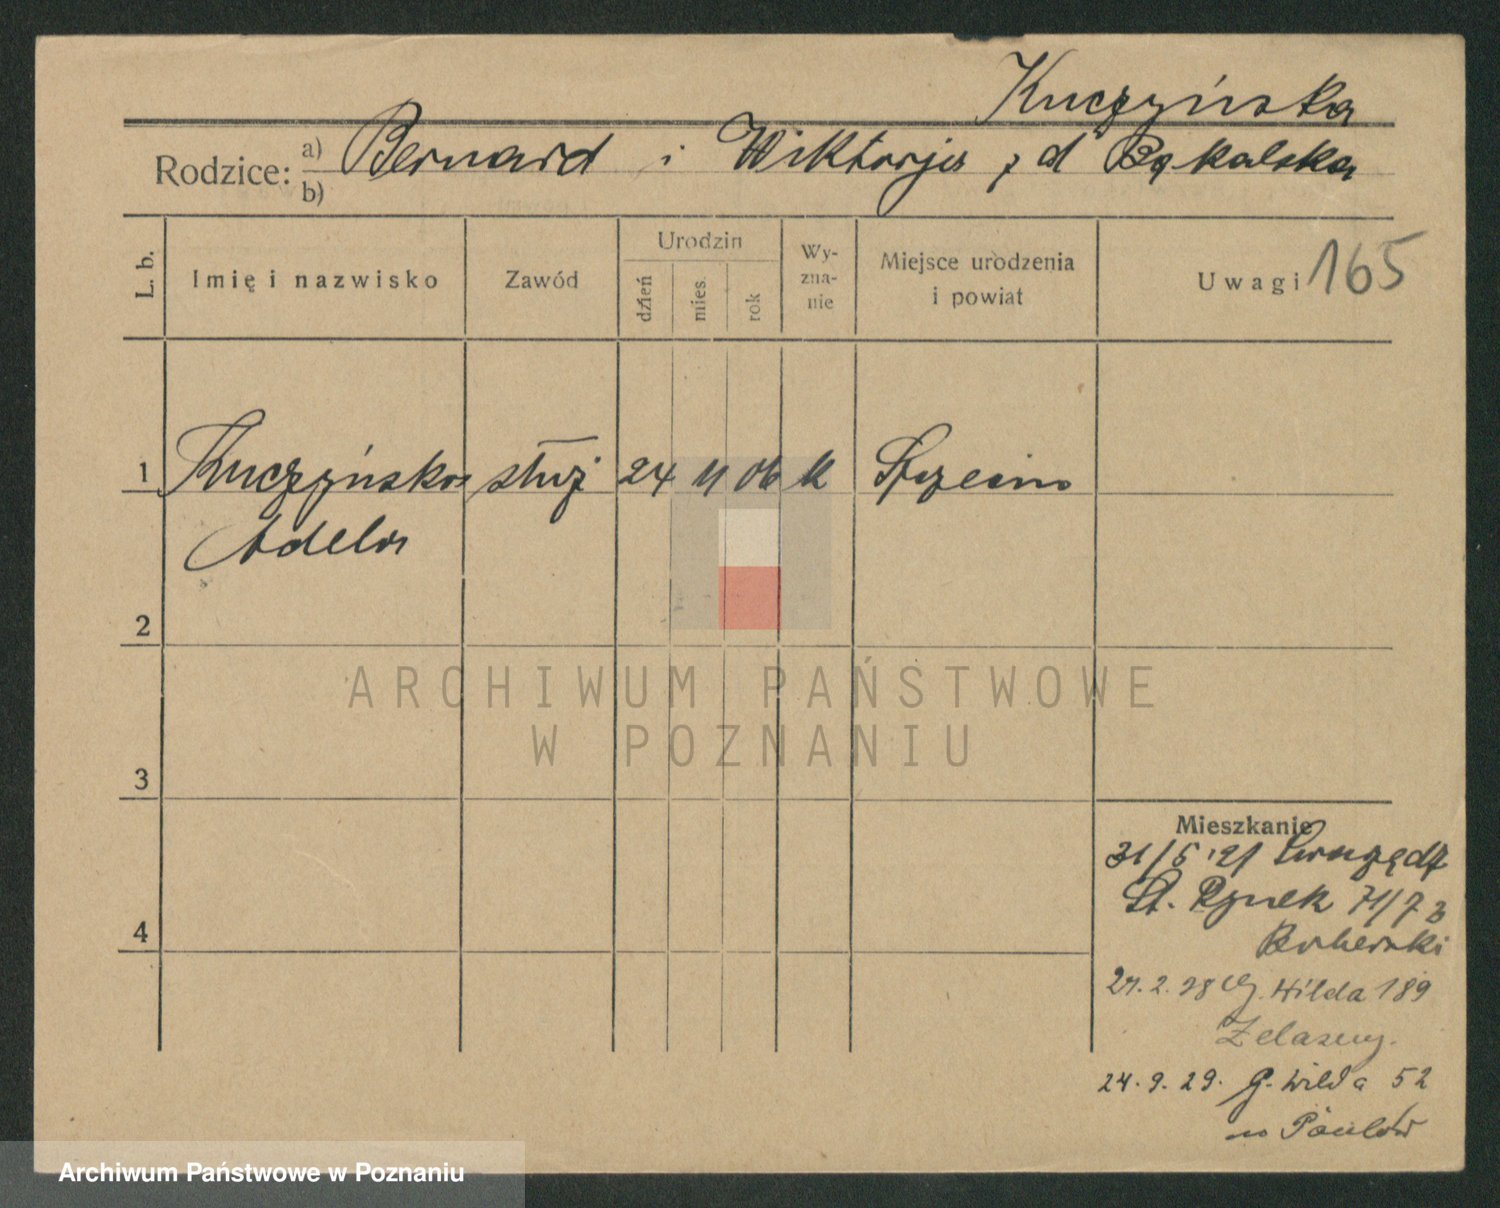 Kuczyńska
Rodzice: a) Bernard i Wiktorja z d Bąkalska
b)
L. b.
Imię i nazwisko
Zawód
Urodzin
dzień
mies.
rok
Wy-
zna-
nie
Miejsce urodzenia
i powiat
Uwagi 165
1 Kuczyńska służ 24 11 06 k
Adela
2
ARCHIWUM PAŃSTWOWE
W POZNANIU
3
4
Mieszkanie
31/5 '21 Swarzędz
St. Rynek 71/72
27.2.28 G. Wilda 189
Żelazny.
24.9.29. G. Wilda 52
Archiwum Państwowe w Poznaniu